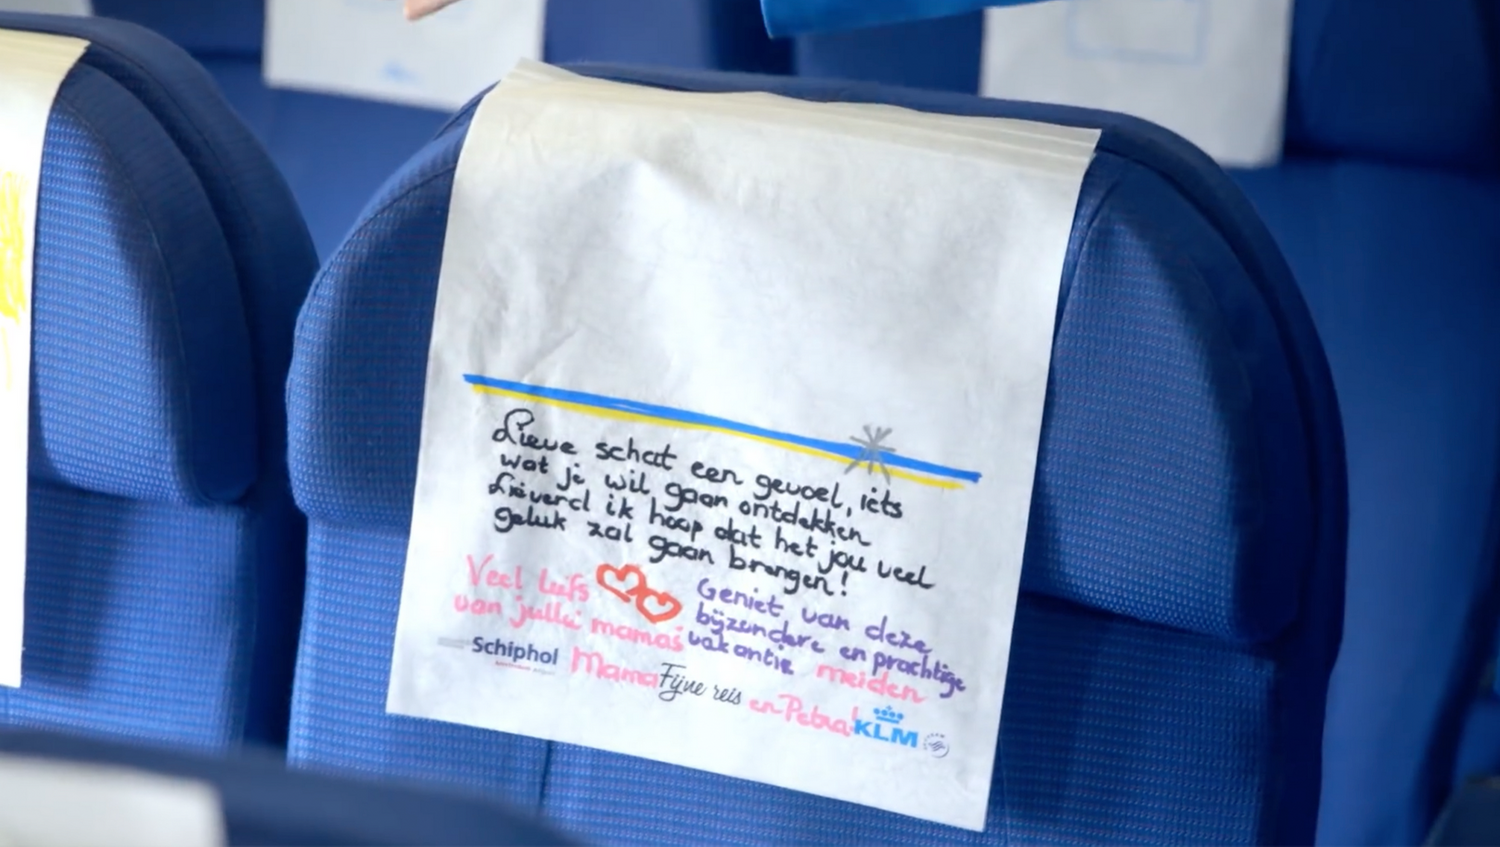 Lieve schat een gevoel, iets
wat je wil gaan ontdekken
Lieverd ik hoop dat het jou veel
geluk zal gaan brengen!
Veel liefs
van jullie mamas
Mama en Petra!
Geniet van deze
bijzondere en prachtige
vakantie meiden
Schiphol
Fijne reis
KLM